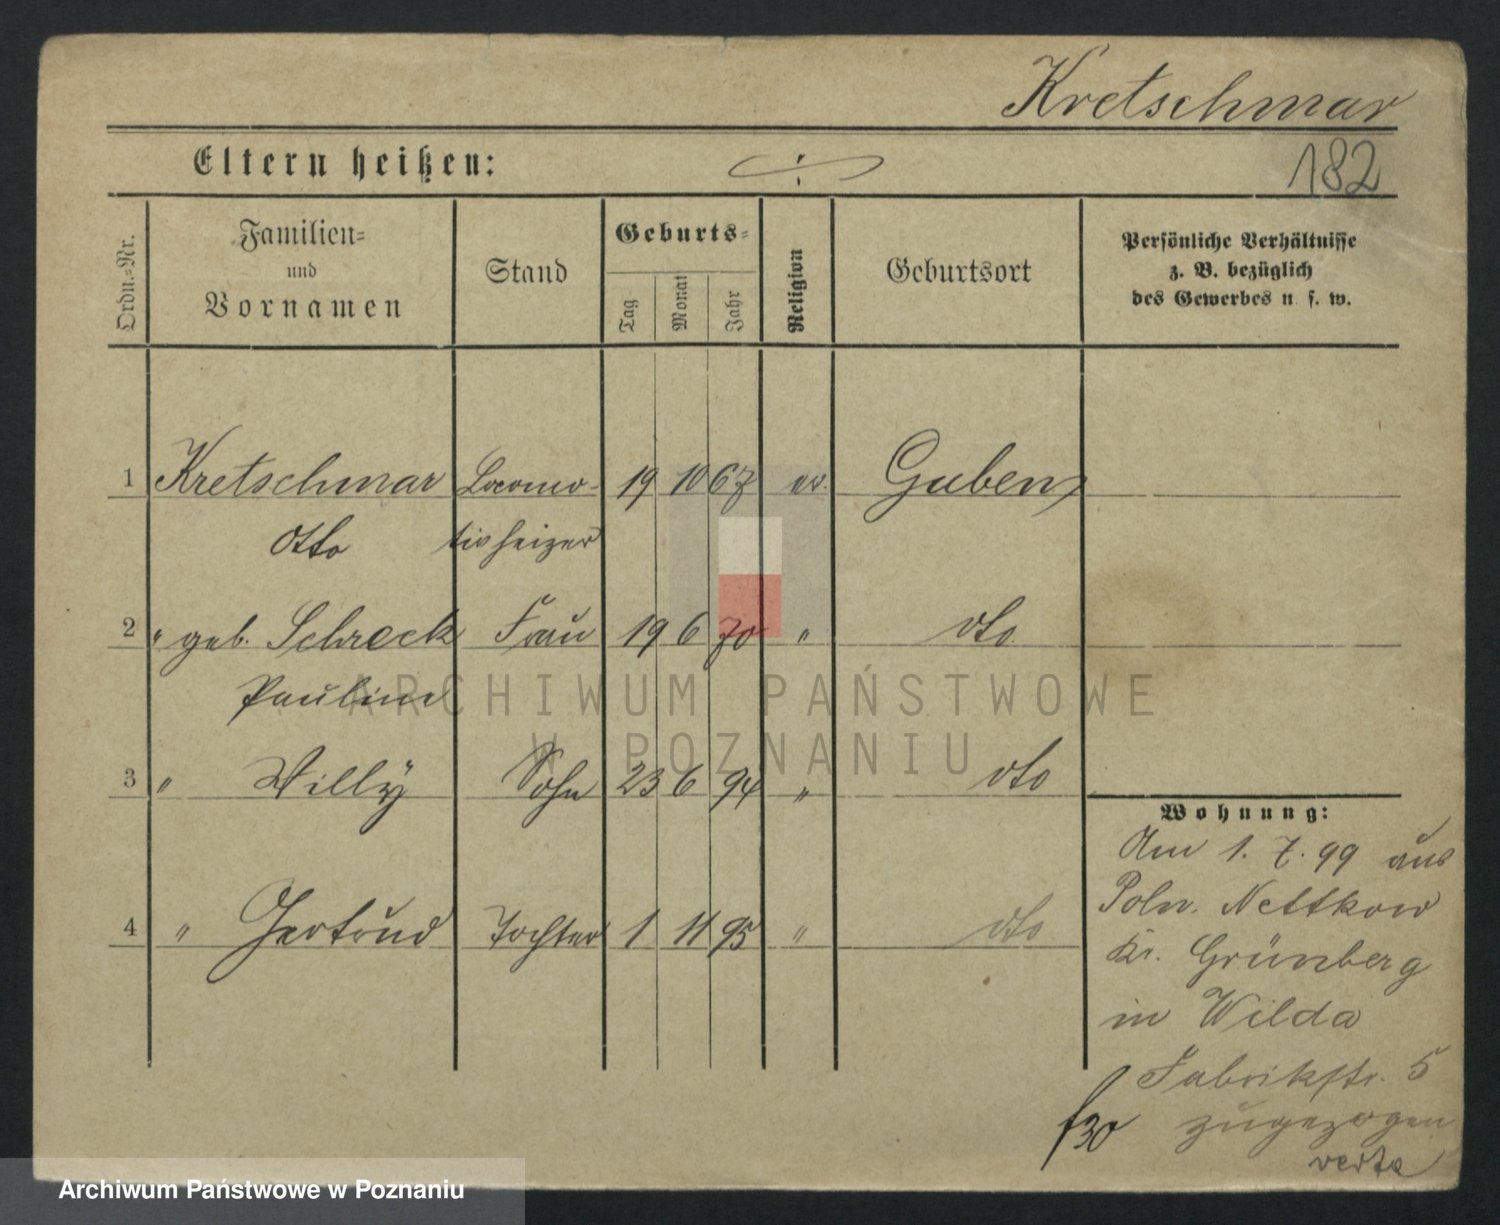 Kretschmar
182
Eltern heißen:
Ordn.=Nr.
Familien=
und
Vornamen
Stand
Geburts=
Tag
Monat
Jahr
Religion
Geburtsort
Persönliche Verhältnisse
z. B. bezüglich
des Gewerbes u. s. w.
1 Kretschmar Locomo- 19 10 67 ev. Guben
Otto tivheizer
2 " geb. Schreck Frau 19 6 70 " dto
Pauline
3 " Willÿ Sohn 23 6 94 " dto
4 " Gertrud Tochter 1 11 95 " dto
Wohnung:
Am 1. 7. 99 aus
Poln. Nettkow
Kr. Grünberg
in Wilda
Fabrikstr. 5
zugezogen
f30
verte
ARCHIWUM PAŃSTWOWE
W POZNANIU
Archiwum Państwowe w Poznaniu